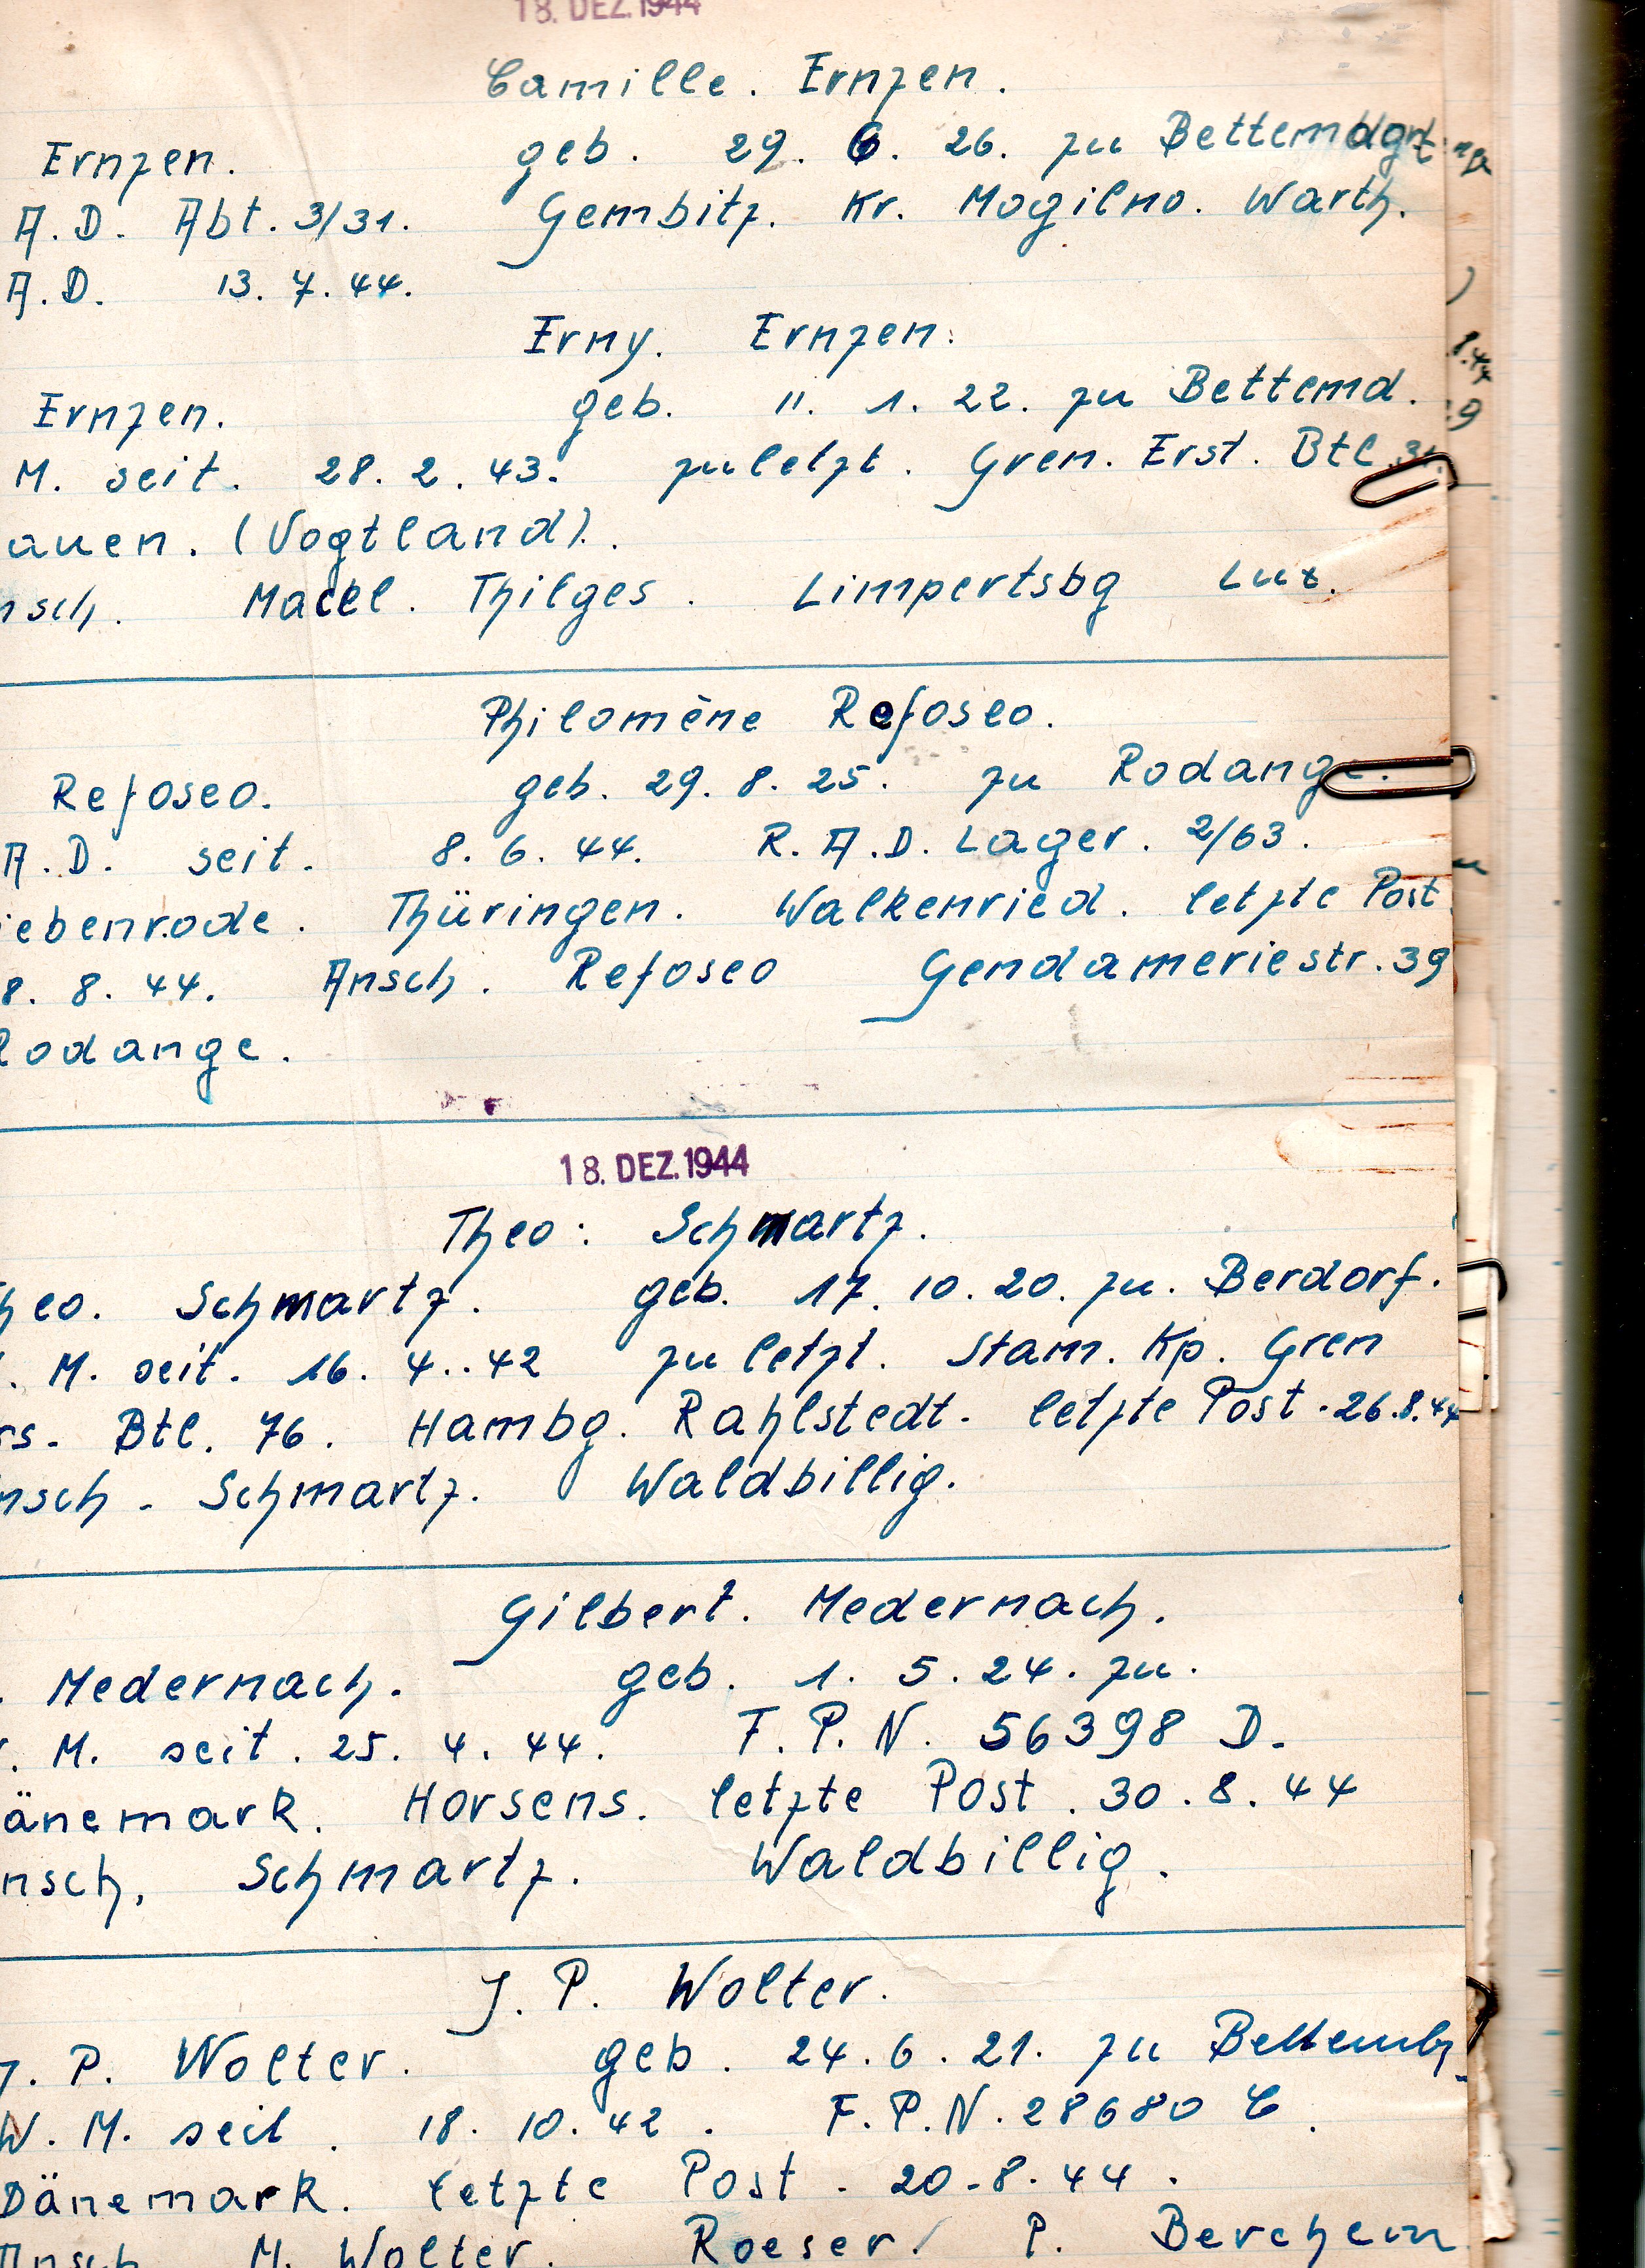 18. DEZ. 1944
Camille. Ernzen.
Ernzen. geb. 29. 6. 26. zu
A. D. Abt. 3/31. Gembitz. Kr. Mogilno. Warth.
A. D. 13. 7. 44.
Erny. Ernzen.
Ernzen. geb. 11. 1. 22. zu Bettemd.
M. seit. 28. 2. 43. zuletzt. Gren. Erst. Btl.
auen. (Vogtland).
nsch. Macel. Thilges. Limpertsbg Lux.
Philomène Refoseo.
Refoseo. geb. 29. 8. 25. zu Rodange.
A. D. seit. 8. 6. 44. R. A. D. Lager. 2/63.
iebenrode. Thüringen. Walkenried. letzte Post
8. 8. 44. Ansch. Refoseo Gendameriestr. 39
Rodange.
18. DEZ. 1944
Theo: Schmartz.
heo. Schmartz. geb. 17. 10. 20. zu. Berdorf.
. M. seit. 16. 4. 42 zuletzt. Stam. Kp. Gren
rs. Btl. 76. Hambg. Rahlstedt. letzte Post. 26.8.44
nsch. Schmartz. Waldbillig.
Gilbert. Medernach.
. Medernach. geb. 1. 5. 24. zu.
. M. seit. 25. 4. 44. F. P. N. 56398 D.
änemark. Horsens. letzte Post. 30. 8. 44
nsch. Schmartz. Waldbillig.
J. P. Wolter.
J. P. Wolter. geb. 24. 6. 21. zu Bettembg
W. M. seit. 18. 10. 42. F. P. N. 28680 C.
Dänemark. letzte Post. 20. 8. 44.
Ansch M. Wolter. Roeser/ P. Berchem